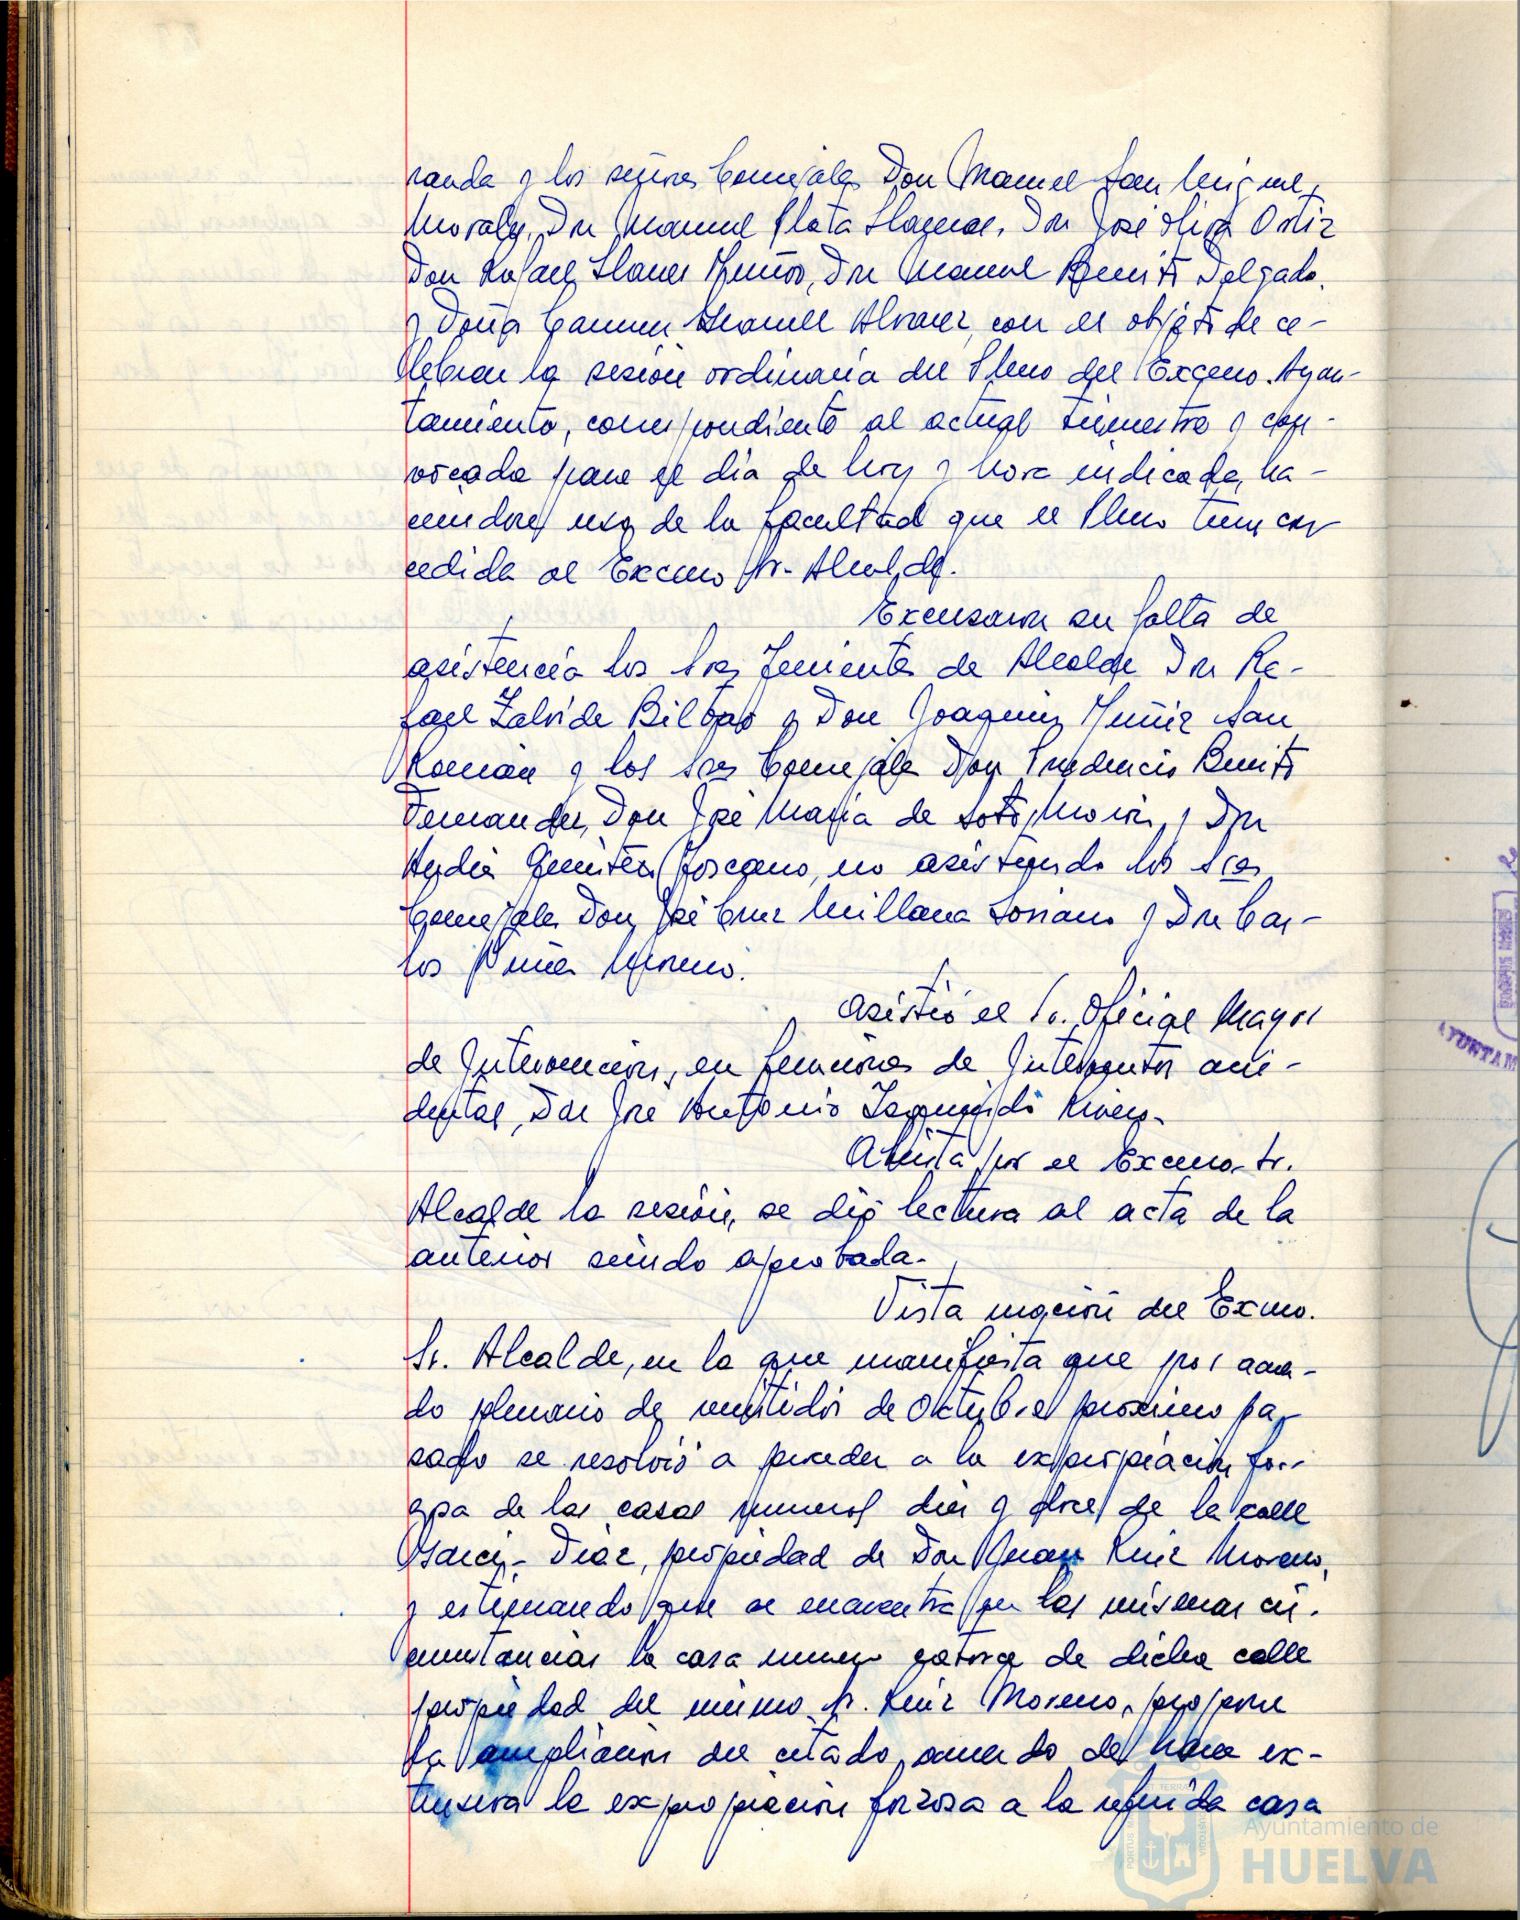 randa y los señores Concejales Don Manuel San Miguel
Morales, Don Manuel Plata Llamas, Don José Oliva Ortiz
Don Rafael Llanes Muñoz, Don Manuel Benito Delgado,
y Doña Carmen Alvarez, con el objeto de ce-
lebrar la sesión ordinaria del Pleno del Excmo. Ayun-
tamiento, correspondiente al actual trimestre y con-
vocada para el día de hoy y hora indicada, ha-
ciendose uso de la facultad que el Pleno tiene con
cedida al Excmo Sr. Alcalde.
Excusaron su falta de
asistencia los Sres Tenientes de Alcalde Don Ra-
fael Zalvide Bilbao y Don Joaquin Muñiz San
Román y los Sres Concejales Don Prudencio Benito
Fernandez, Don José Maria de Soto Morón, y Don
Toscano, no asistiendo los Sres
Concejales Don José Cruz Millana Soriano y Don Car-
los Moreno.
Asistió el Sr. Oficial Mayor
de Intervención, en funciones de Interventor acci-
dental, Don José Antonio Rivero.
Abierta por el Excmo. Sr.
Alcalde la sesión, se dió lectura al acta de la
anterior siendo aprobada.
Vista moción del Excmo.
Sr. Alcalde, en la que manifiesta que por acuer-
do plenario de veintidos de Octubre proximo pa-
sado se resolvió a proceder a la expropiación for-
zosa de las casas numeros diez y doce de la calle
Garci-Diaz, propiedad de Don Juan Ruiz Moreno,
y estimando que se encuentra en las mismas cir-
cunstancias la casa numero catorce de dicha calle
propiedad del mismo Sr. Ruiz Moreno, propone
la ampliación del citado acuerdo de hacer ex-
tensiva la expropiación forzosa a la referida casa
AYUNTAM
Ayuntamiento de
HUELVA